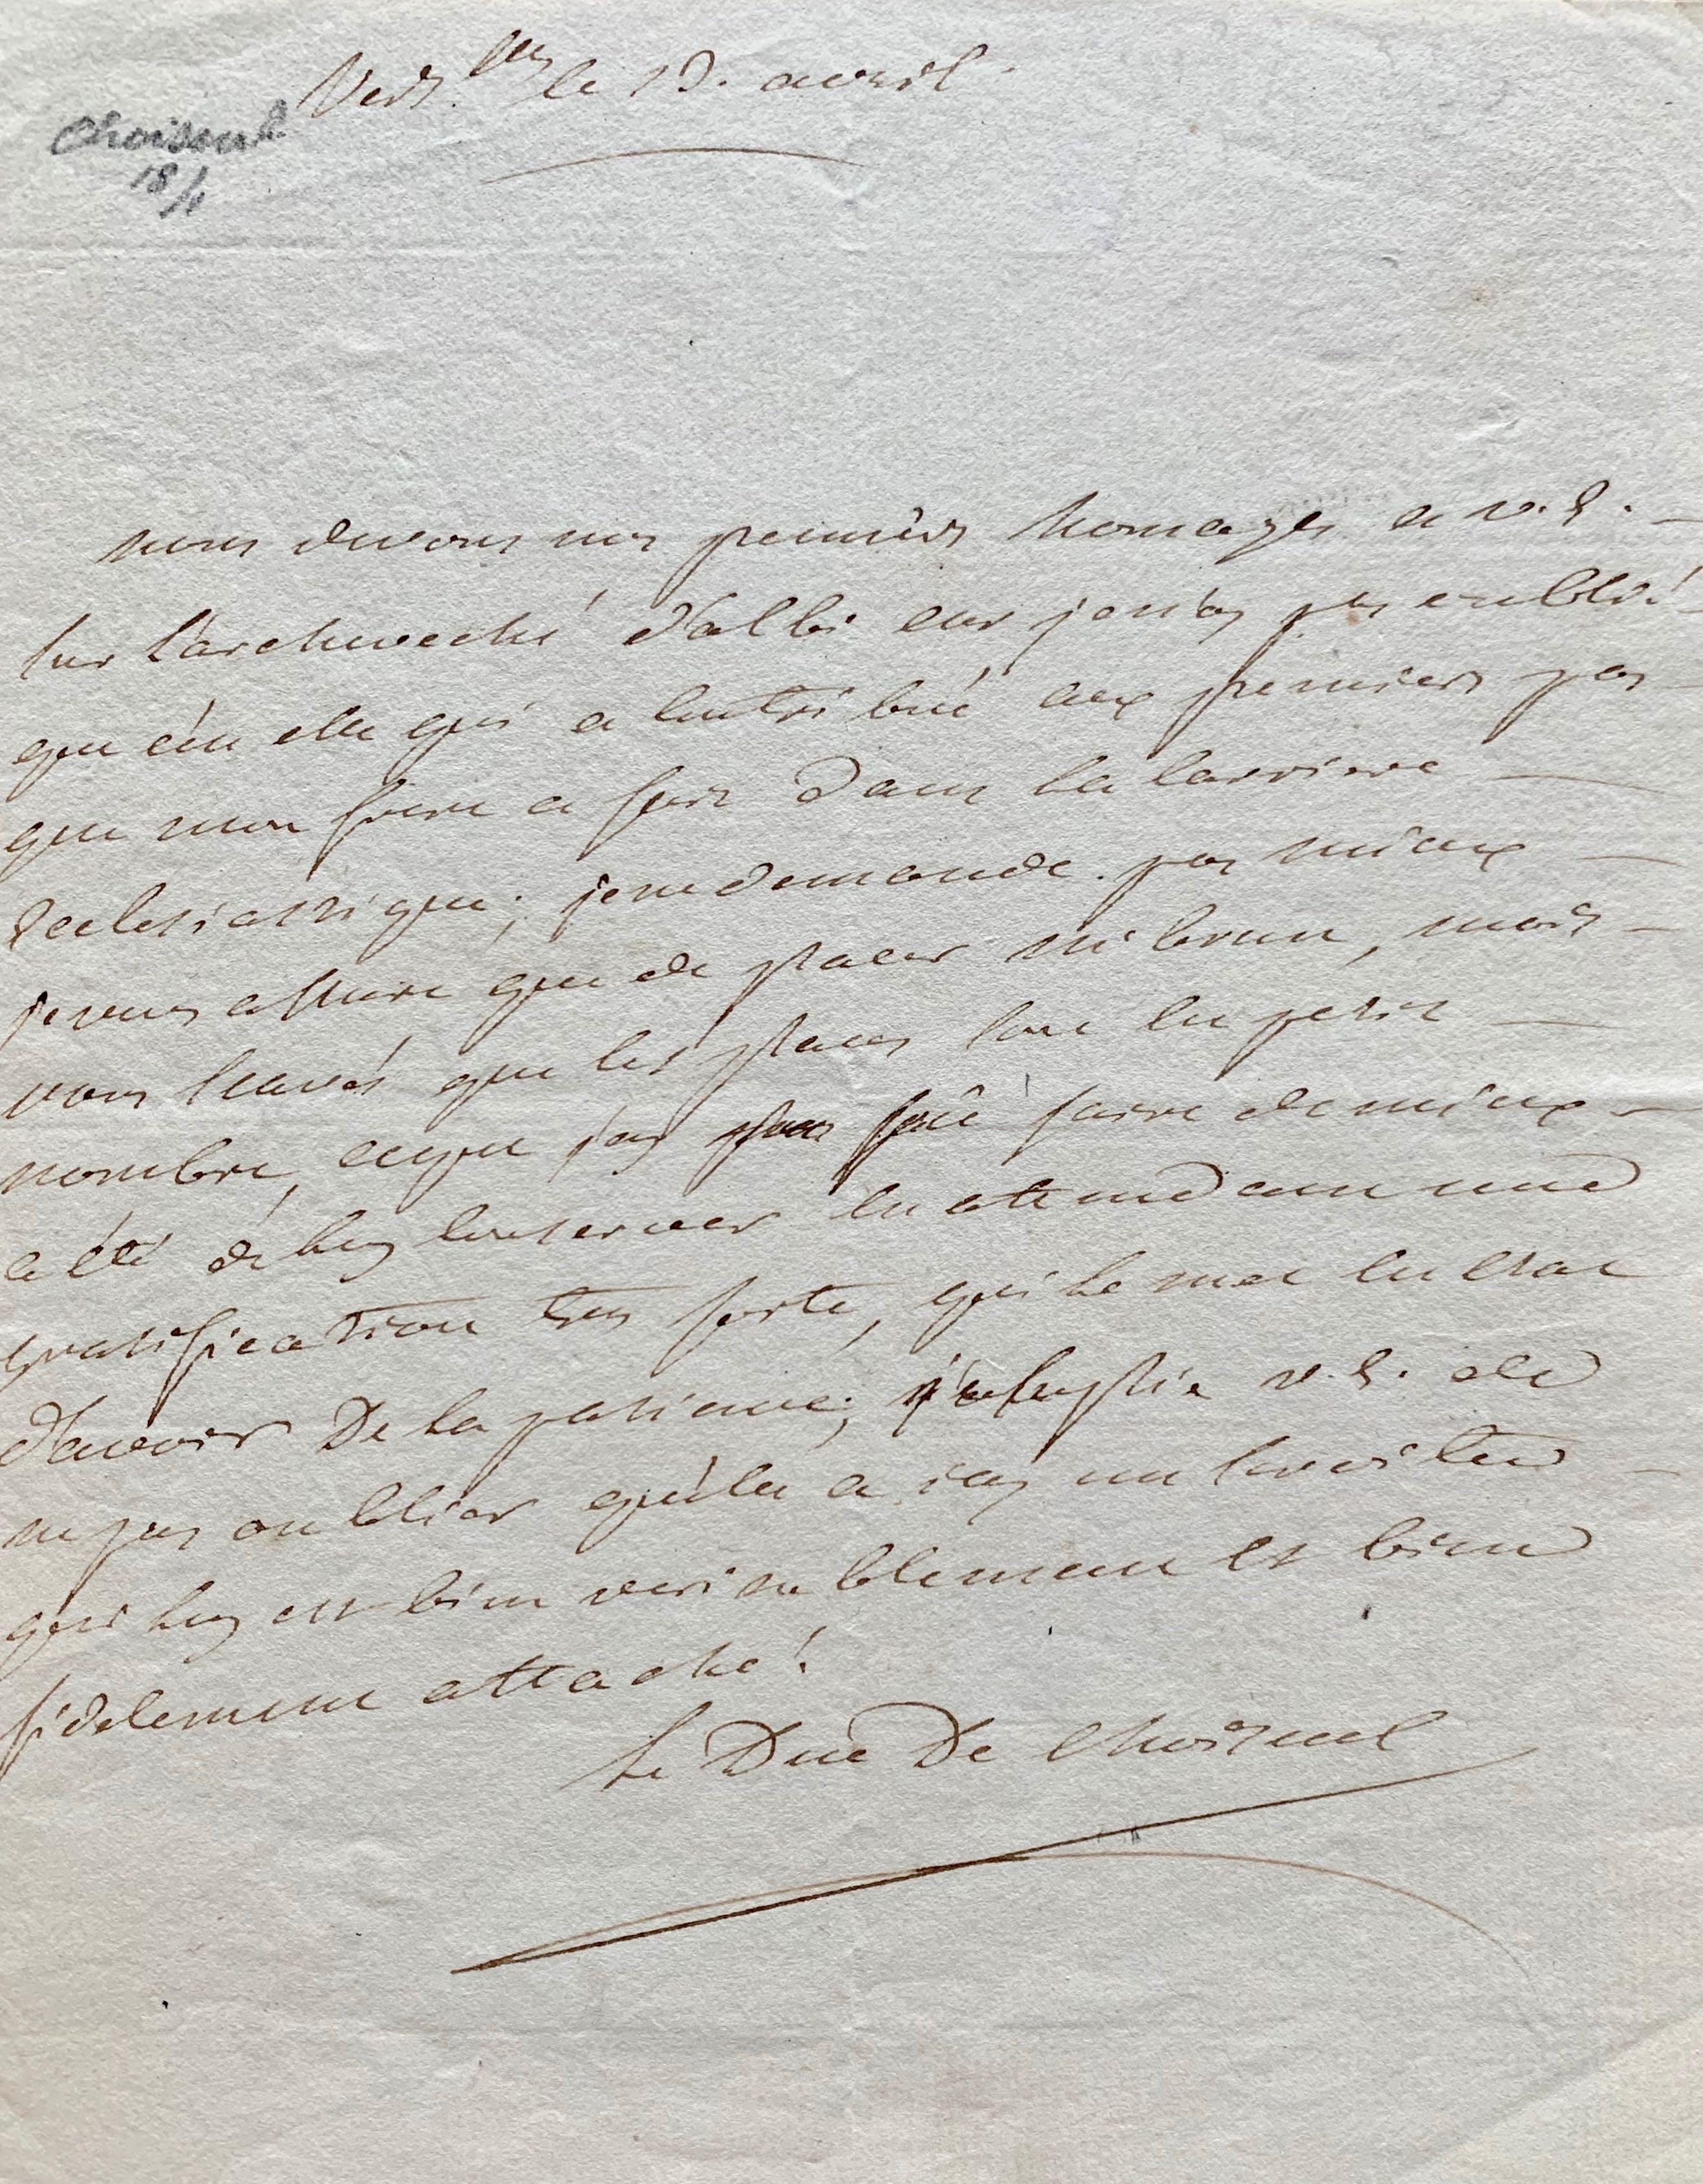 Vers.lles le 13. avril
Choiseul
18/4
nous devons nos premiers homages a v. E.
sur l'archeveché d'albi car je n'ay pas oublié
que c'est elle qui a contribué aux premiers pas
que mon frere a fait dans la carriere
Ecclesiastique; je ne demande pas mieux
je vous assure que de placer mr brun, mais
vous scavés que les places sont en petit
nombre, ce que j'ay pu faire de mieux
a été de luy conserver en attendant une
gratification tres forte, qui le met en etat
d'avoir De la patience; je suplie v. E. de
ne pas oublier qu'elle a icy un serviteur
qui luy est bien veritablement et bien
fidelement attaché.
Le Duc De Choiseul